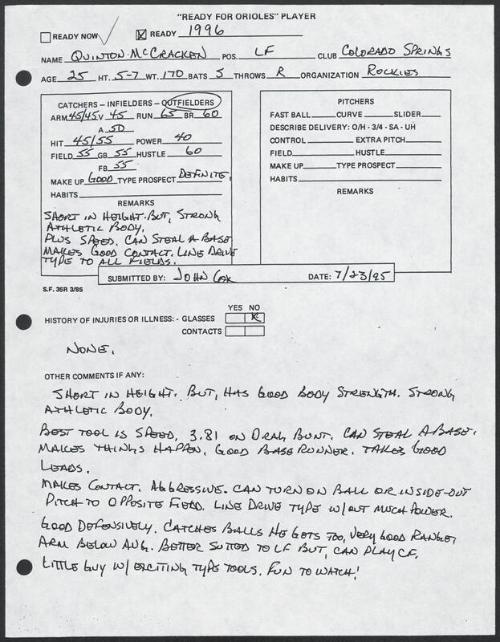 "READY FOR ORIOLES" PLAYER
READY NOW ☒ READY 1996
NAME QUINTON McCRACKEN POS. LF CLUB COLORADO SPRINGS
AGE 25 HT. 5-7 WT. 170 BATS S THROWS R ORGANIZATION ROCKIES
CATCHERS - INFIELDERS - OUTFIELDERS
ARM 45/45 V 45 RUN 65 BR 60
A 50
HIT 45/55 POWER 40
FIELD 55 GB 55 HUSTLE 60
FB 55
MAKE UP GOOD TYPE PROSPECT DEFINITE.
HABITS
REMARKS
SHORT IN HEIGHT. BUT, STRONG
ATHLETIC BODY.
PLUS SPEED. CAN STEAL A BASE
MAKES GOOD CONTACT. LINE DRIVE
TYPE TO ALL FIELDS.
PITCHERS
FAST BALL CURVE SLIDER
DESCRIBE DELIVERY: O/H - 3/4 - SA - UH
CONTROL EXTRA PITCH
FIELD HUSTLE
MAKE UP TYPE PROSPECT
HABITS
REMARKS
SUBMITTED BY: JOHN COX DATE: 7/23/95
S.F. 36R 3/85
YES NO
HISTORY OF INJURIES OR ILLNESS: - GLASSES X
CONTACTS
NONE.
OTHER COMMENTS IF ANY:
SHORT IN HEIGHT. BUT, HAS GOOD BODY STRENGTH. STRONG
ATHLETIC BODY.
BEST TOOL IS SPEED, 3.81 ON DRAG BUNT. CAN STEAL A BASE.
MAKES THINGS HAPPEN. GOOD BASE RUNNER. TAKES GOOD
LEADS.
MAKES CONTACT. AGGRESSIVE. CAN TURN ON BALL OR INSIDE-OUT
PITCH TO OPPOSITE FIELD. LINE DRIVE TYPE W/OUT MUCH POWER.
GOOD DEFENSIVELY. CATCHES BALLS HE GETS TOO, VERY GOOD RANGE,
ARM BELOW AVG. BETTER SUITED TO LF BUT, CAN PLAY CF.
LITTLE GUY W/ EXCITING TYPE TOOLS. FUN TO WATCH!